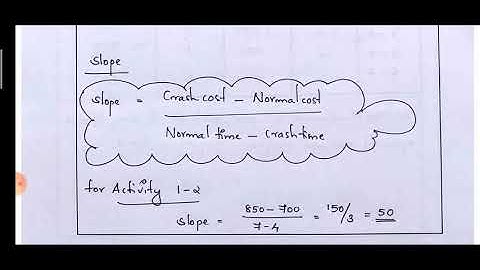 Slope
Slope = Crash cost - Normal cost
Normal time - Crash time
for Activity 1-2
Slope = 850-700 = 150/3 = 50
7-4